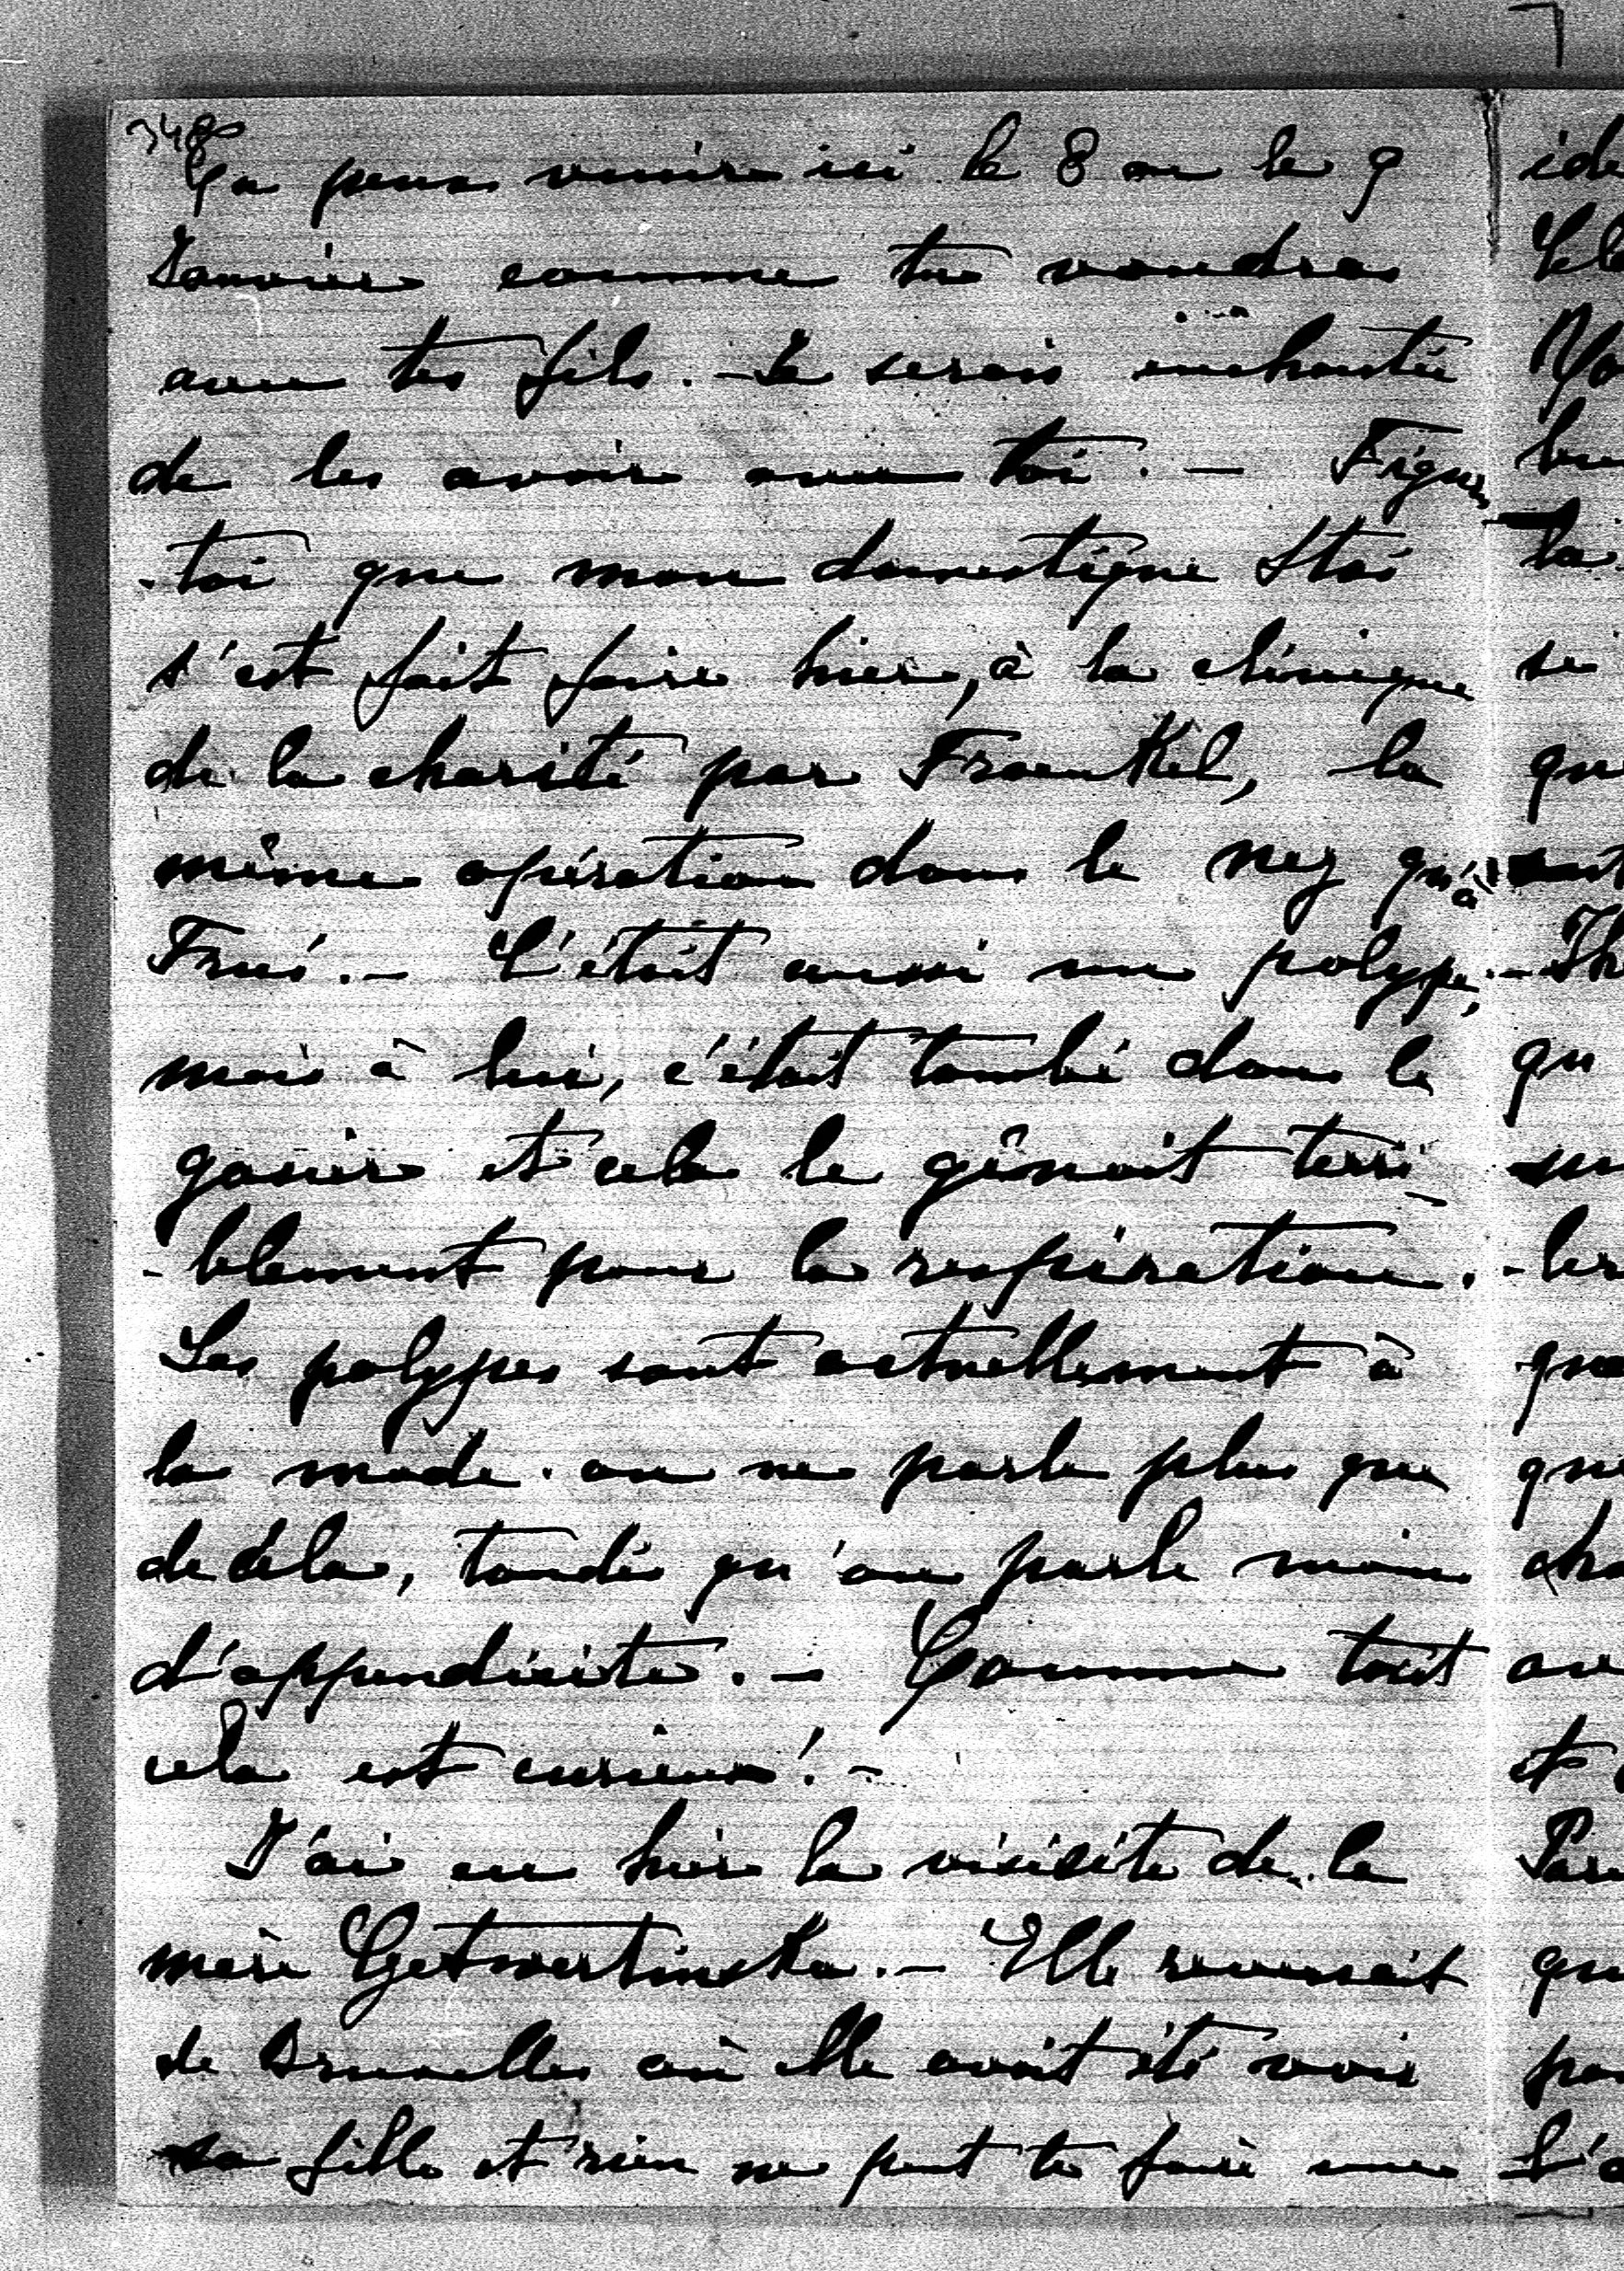 348
Ça peux venir ici le 8 ou le 9
Janvier comme tu voudras
avec tes fils. - Je serais enchantée
de les avoir avec toi. - Figure
-toi que mon domestique Stas
s'est fait faire hier, à la clinique
de la charité par Fraenkel, la
même opération dans le nez qu'à
C'était aussi un polype,
mais à lui, c'était tombé dans le
gosier et cela le gênait terri-
-blement pour la respiration.
Les polypes sont actuellement à
la mode. on ne parle plus que
de cela, tandis qu'on parle moins
d'appendicite. - Comme tout
cela est curieux! -
J'ai eu hier la visisite de la
mère Czetwertinska. - Elle revenait
de Bruxelles où elle avait été voir
sa fille et rien ne peut te faire une